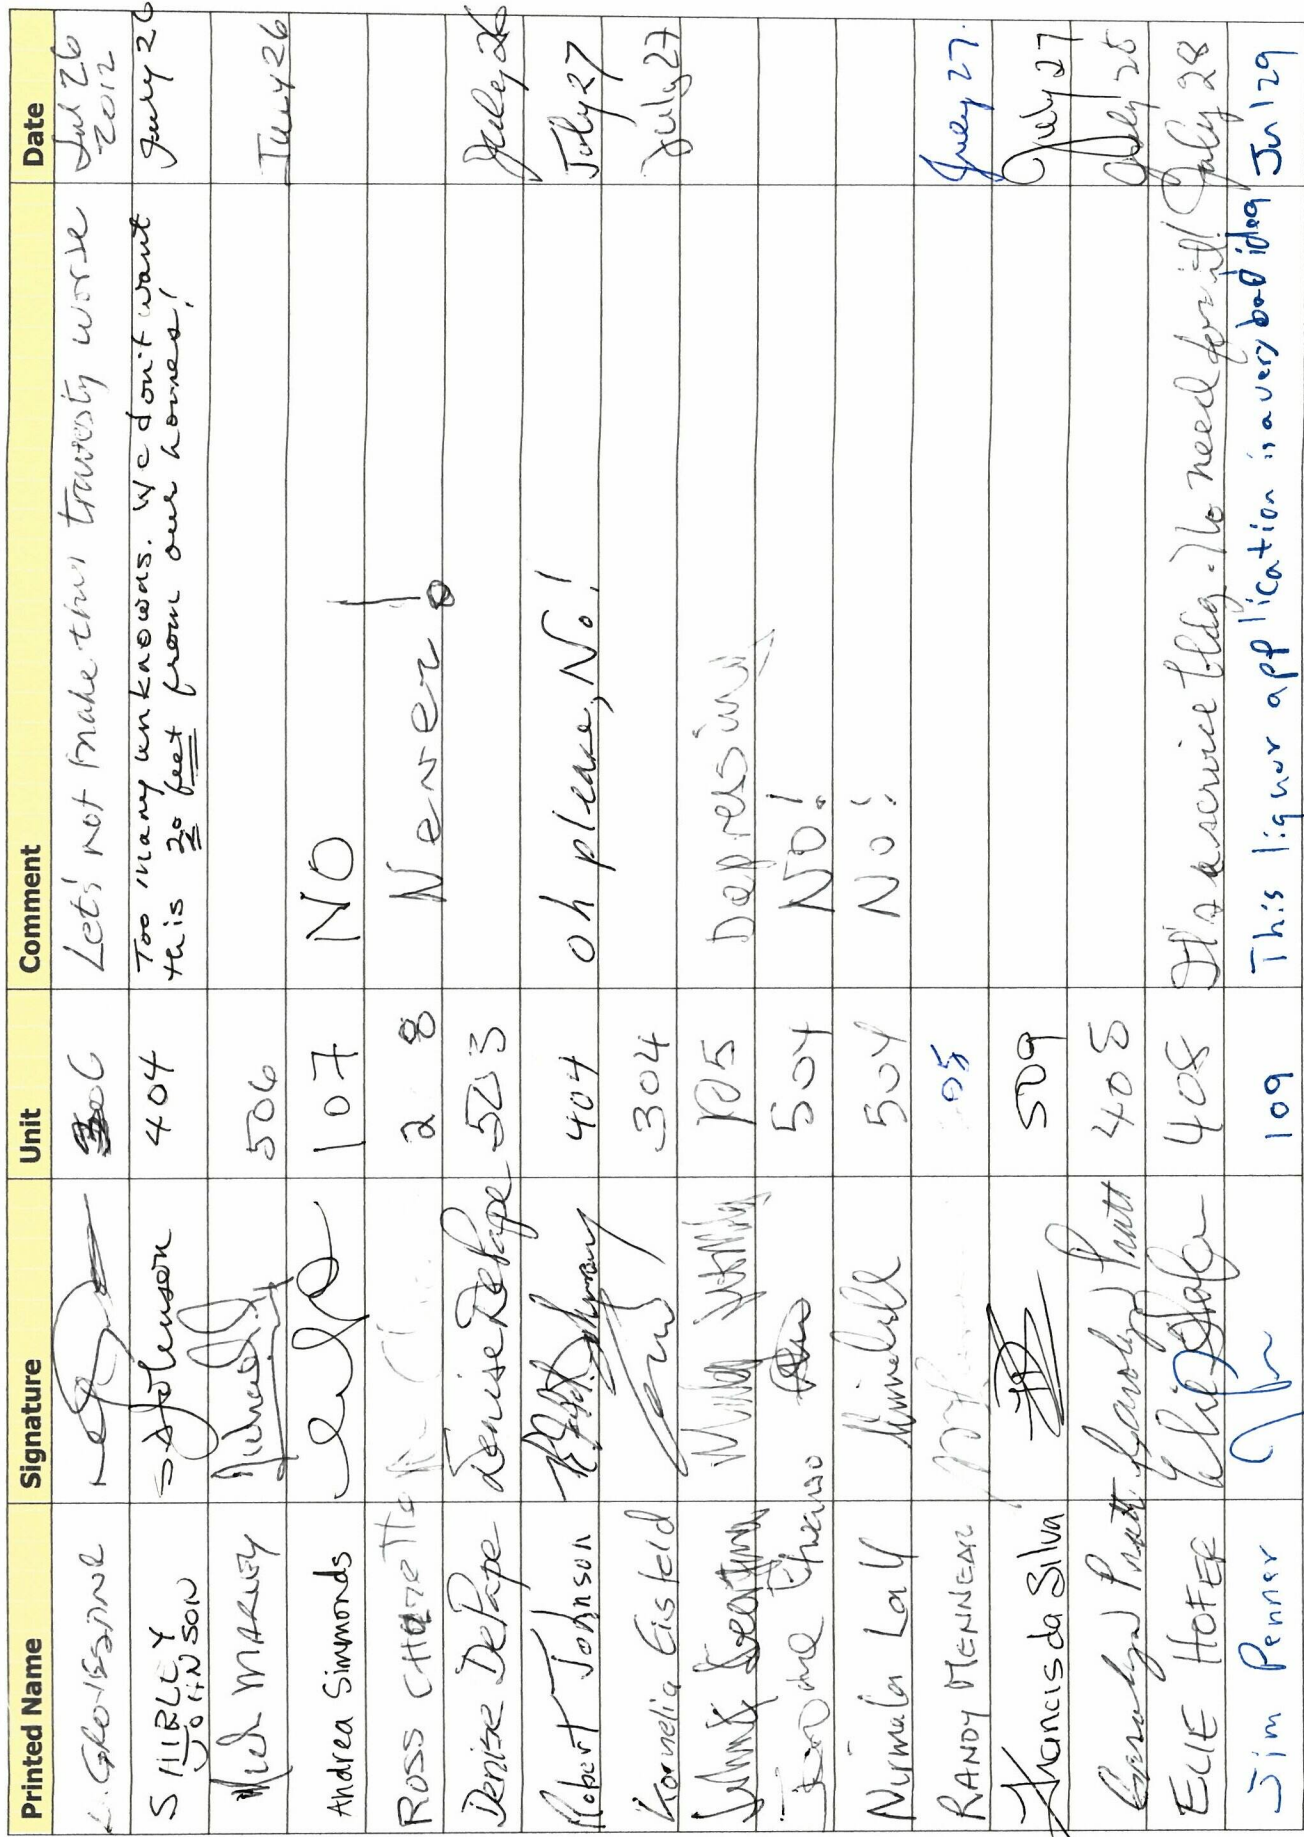 Printed Name Signature Unit Comment Date
306 Let's not make this travesty worse Jul 26
2012
SHIRLEY JOHNSON SJohnson 404 Too many unknowns. We don't want July 26
this 20 feet from our homes!
MARNEY 506 July 26
Andrea Simmonds 107 NO
ROSS 2 8 Never!
Denise DePape Denise DePape 503 July 26
Robert Johnson 404 oh please, No! July 27
Kornelia Eisfeld 304 July 27
105 Depressing
504 NO!
Nirmala Lall 504 No!
RANDY MENNEAR 05 July 27
Francis da Silva 509 July 27
Carolyn Pratt Carolyn Pratt 408 July 28
ELIE HOFER Elie Hofer 408 It's a service bldg. No need for it! July 28
Jim Penner 109 This liquor application is a very bad idea Jul 29